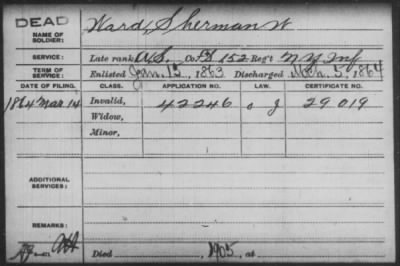 DEAD
NAME OF SOLDIER: Ward, Sherman W
SERVICE: Late rank A.S., Co. D 152 Reg't N.Y. Inf
TERM OF SERVICE: Enlisted Jan. 13, 1863 Discharged Mch. 5, 1864
DATE OF FILING. CLASS. APPLICATION NO. LAW. CERTIFICATE NO.
1864 Mar 14 Invalid, 42246 o j 29019
Widow,
Minor,
ADDITIONAL SERVICES:
REMARKS:
Died 1905, at